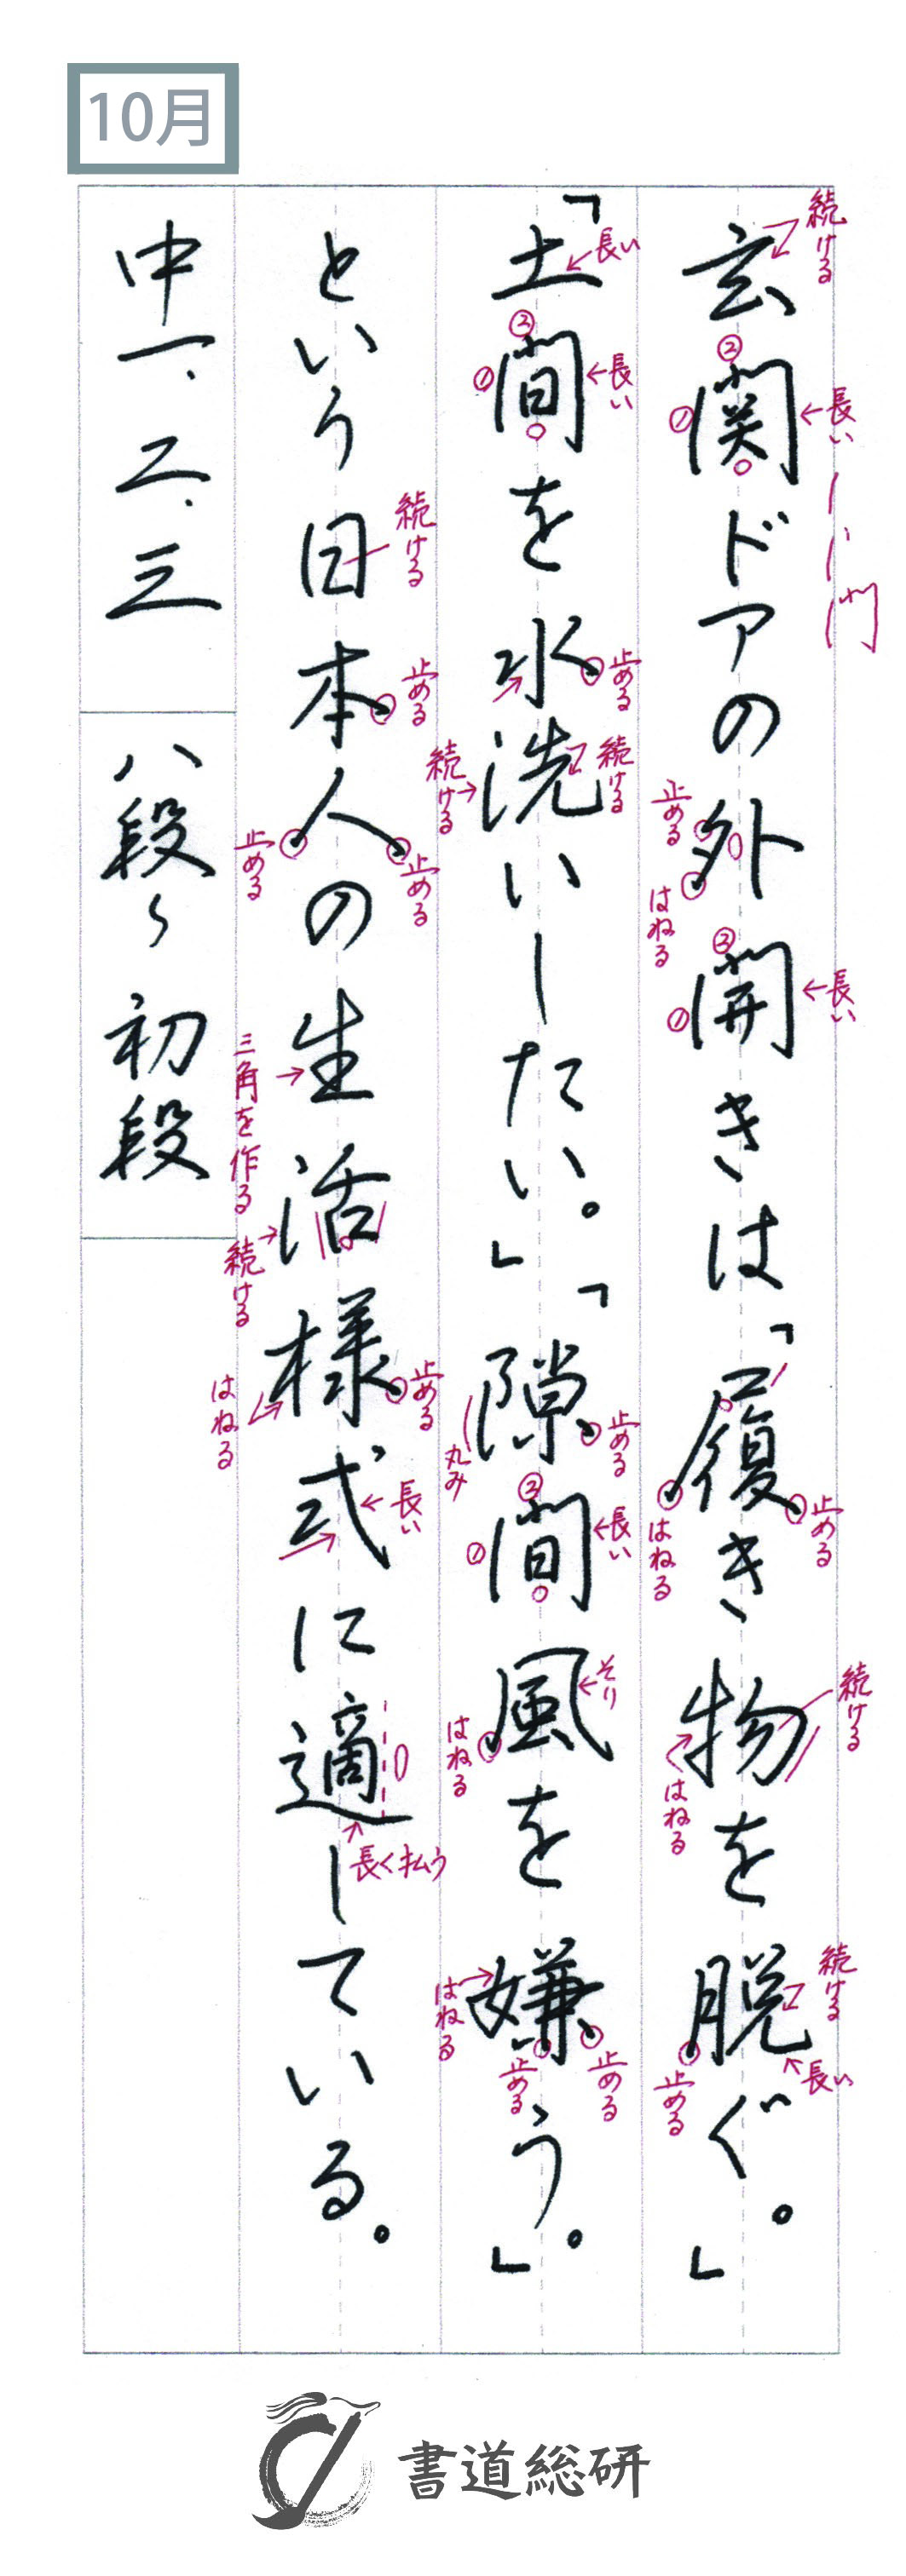 10月
玄関ドアの外開きは「履き物を脱ぐ。」
「土間を水洗いしたい。」「隙間風を嫌う。」
という日本人の生活様式に適している。
中一、二、三
八段〜初段
続ける
長い
門
止める
はねる
長い
止める
はねる
続ける
はねる
続ける
長い
止める
長い
長い
止める
続ける
続ける
止める
丸み
長い
そり
はねる
はねる
止める
止める
続ける
止める
止める
止める
三角を作る
続ける
止める
はねる
長い
長く払う
書道総研